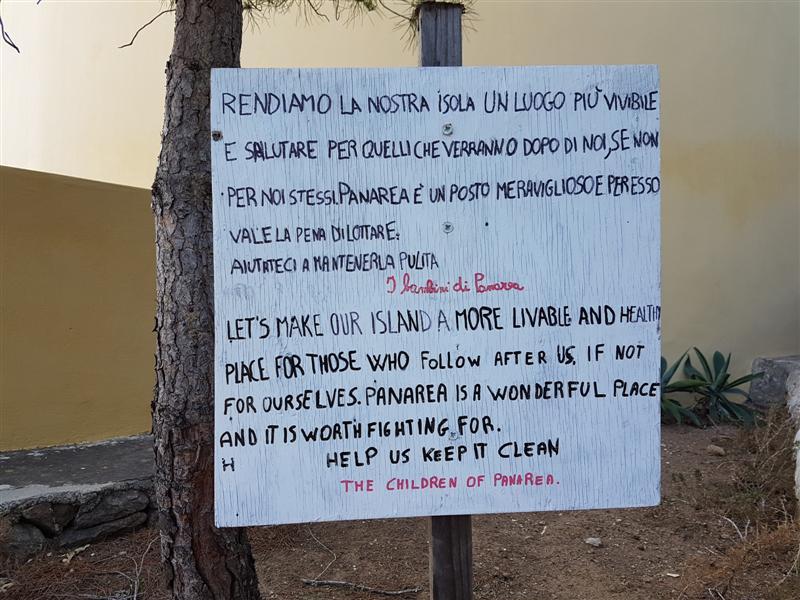 RENDIAMO LA NOSTRA ISOLA UN LUOGO PIÙ VIVIBILE
E SALUTARE PER QUELLI CHE VERRANNO DOPO DI NOI, SE NON
PER NOI STESSI. PANAREA È UN POSTO MERAVIGLIOSO E PER ESSO
VALE LA PENA DI LOTTARE.
AIUTATECI A MANTENERLA PULITA
I bambini di Panarea
LET'S MAKE OUR ISLAND A MORE LIVABLE AND HEALTH
PLACE FOR THOSE WHO FOLLOW AFTER US, IF NOT
FOR OURSELVES. PANAREA IS A WONDERFUL PLACE
AND IT IS WORTH FIGHTING FOR.
H HELP US KEEP IT CLEAN
THE CHILDREN OF PANAREA.